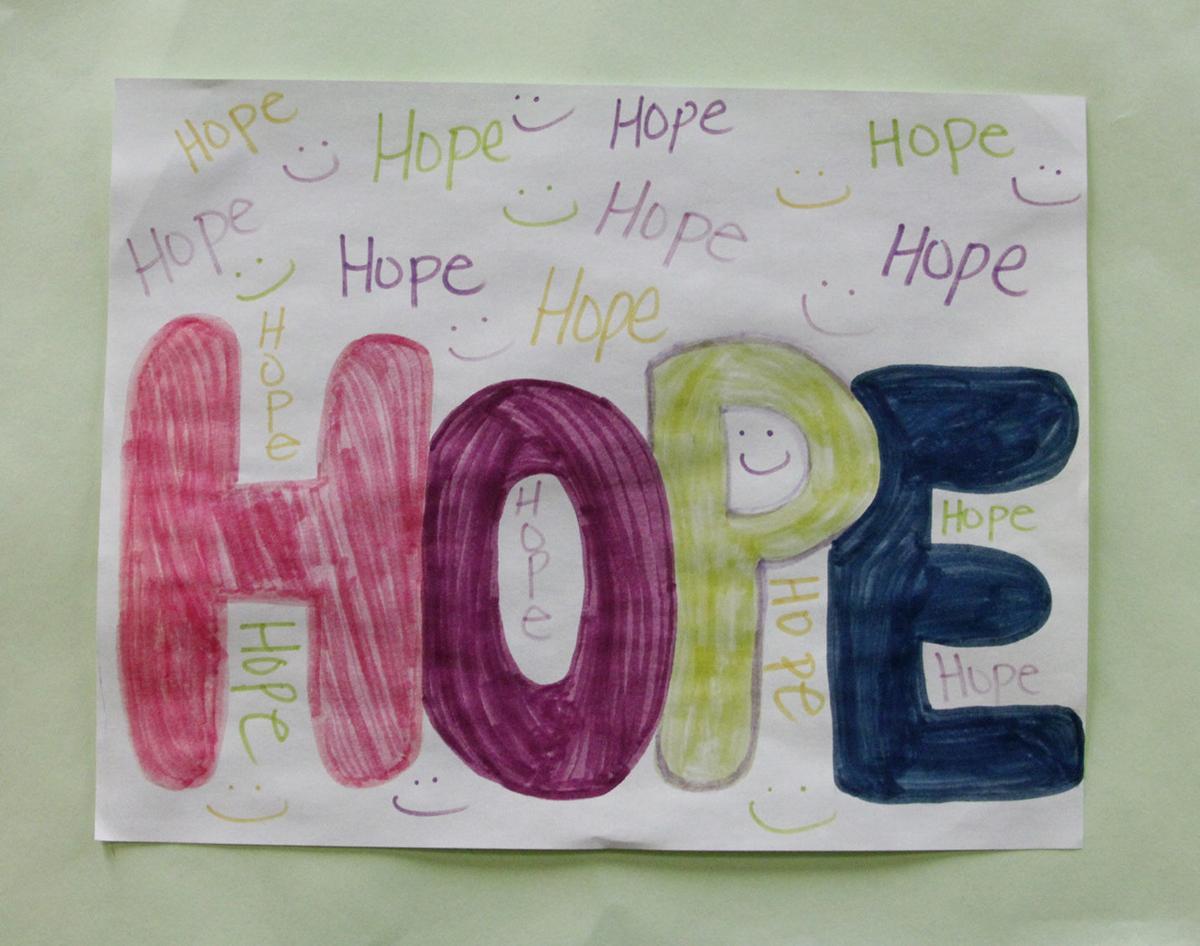 Hope
Hope
Hope
Hope
Hope
Hope
Hope
Hope
Hope
Hope
HOPE
Hope
Hope
Hope
Hope
Hope
Hope